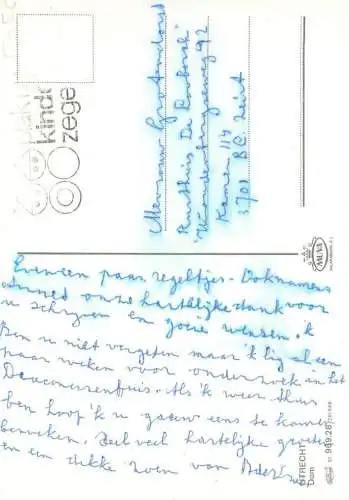 Even een paar regeltjes. Ook namens
onze hartelijke dank voor
u schrijven en goeie wensen. 'k
Ben u niet vergeten maar 'k lig al een
paar weken voor onderzoek in het
Deaconessenhuis. Als 'k weer thuis
ben hoop 'k u gauw eens te komen
bezoeken. Heel veel hartelijke groeten
en een dikke zoen van
Mevrouw
Rusthuis De
Kamer 114
3701 Zeist
kinde
zege
MUVA
UTRECHT
Dom